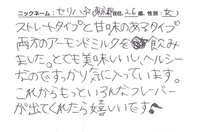 ニックネーム:セリハや 病源(在住、26歳、性別:女)
ストレートタイプと甘味のあるタイプ
両方のアーモンドミルクを飲み
ました。とても美味しいし、ヘルシー
なのですっかり気に入っています。
これからもっといろんなフレーバー
が出てくれたら嬉しいです♪